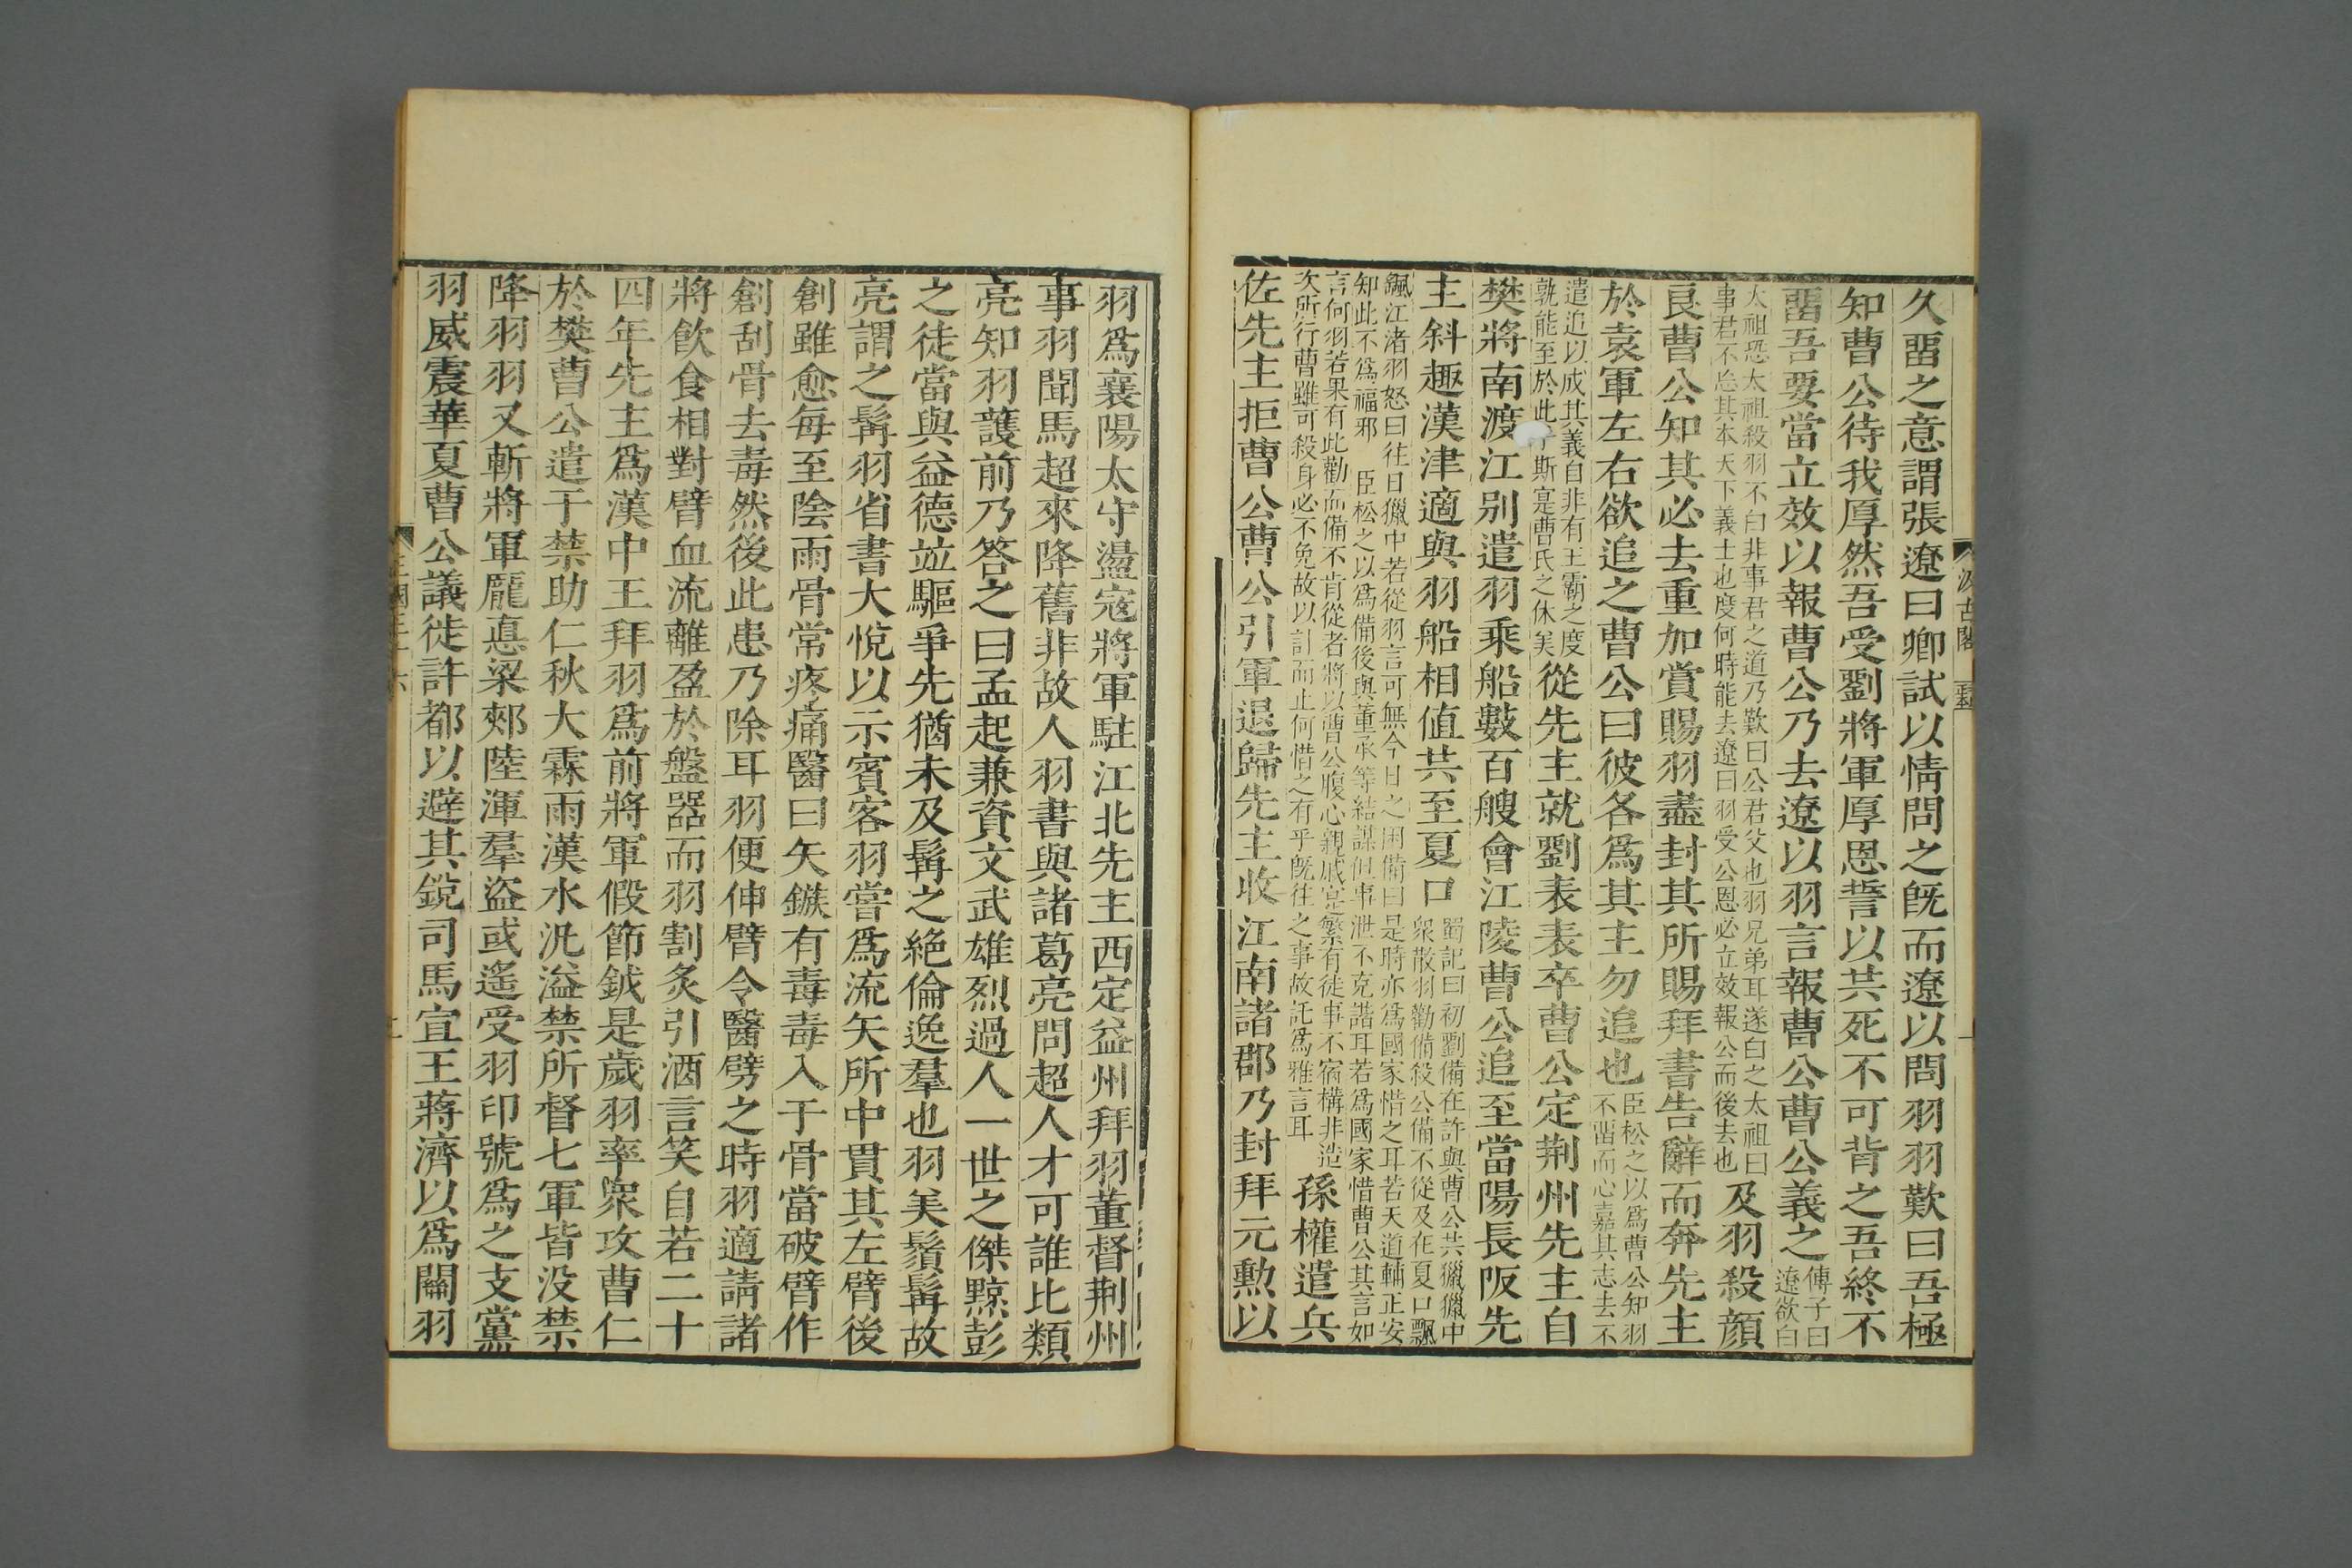 汲古閣
久畱之意謂張遼曰卿試以情問之旣而遼以問羽羽歎曰吾極
知曹公待我厚然吾受劉將軍厚恩誓以共死不可背之吾終不
畱吾要當立效以報曹公乃去遼以羽言報曹公曹公義之傅子曰遼欲白
太祖恐太祖殺羽不白非事君之道乃歎曰公君父也羽兄弟耳遂白之太祖曰事君不忘其本天下義士也度何時能去遼曰羽受公恩必立效報公而後去也及羽殺顏
良曹公知其必去重加賞賜羽盡封其所賜拜書告辭而奔先主
於袁軍左右欲追之曹公曰彼各爲其主勿追也臣松之以爲曹公知羽不畱而心嘉其志去不
遣追以成其義自非有王霸之度孰能至於此斯寔曹氏之休美從先主就劉表表卒曹公定荆州先主自
樊將南渡江別遣羽乘船數百艘會江陵曹公追至當陽長阪先
主斜趣漢津適與羽船相値共至夏口蜀記曰初劉備在許與曹公共獵獵中衆散羽勸備殺公備不從及在夏口飄
颻江渚羽怒曰往日獵中若從羽言可無今日之困備曰是時亦爲國家惜之耳若天道輔正安知此不爲福邪 臣松之以爲備後與董承等結謀但事泄不克諧耳若爲國家惜曹公其言如
言何羽若果有此勸而備不肯從者將以曹公腹心親戚寔繁有徒事不宿構非造次所行曹雖可殺身必不免故以計而止何惜之有乎旣往之事故託爲雅言耳孫權遣兵
佐先主拒曹公曹公引軍退歸先主收江南諸郡乃封拜元勳以
羽爲襄陽太守盪寇將軍駐江北先主西定益州拜羽董督荆州
事羽聞馬超來降舊非故人羽書與諸葛亮問超人才可誰比類
亮知羽護前乃答之曰孟起兼資文武雄烈過人一世之傑黥彭
之徒當與益德竝驅爭先猶未及髯之絕倫逸羣也羽美鬚髯故
亮謂之髯羽省書大悅以示賓客羽嘗爲流矢所中貫其左臂後
創雖愈每至陰雨骨常疼痛醫曰矢鏃有毒毒入于骨當破臂作
創刮骨去毒然後此患乃除耳羽便伸臂令醫劈之時羽適請諸
將飮食相對臂血流離盈於盤器而羽割炙引酒言笑自若二十
四年先主爲漢中王拜羽爲前將軍假節鉞是歲羽率衆攻曹仁
於樊曹公遣于禁助仁秋大霖雨漢水汎溢禁所督七軍皆沒禁
降羽羽又斬將軍龐悳梁郟陸渾羣盜或遙受羽印號爲之支黨
羽威震華夏曹公議徙許都以避其銳司馬宣王蔣濟以爲關羽